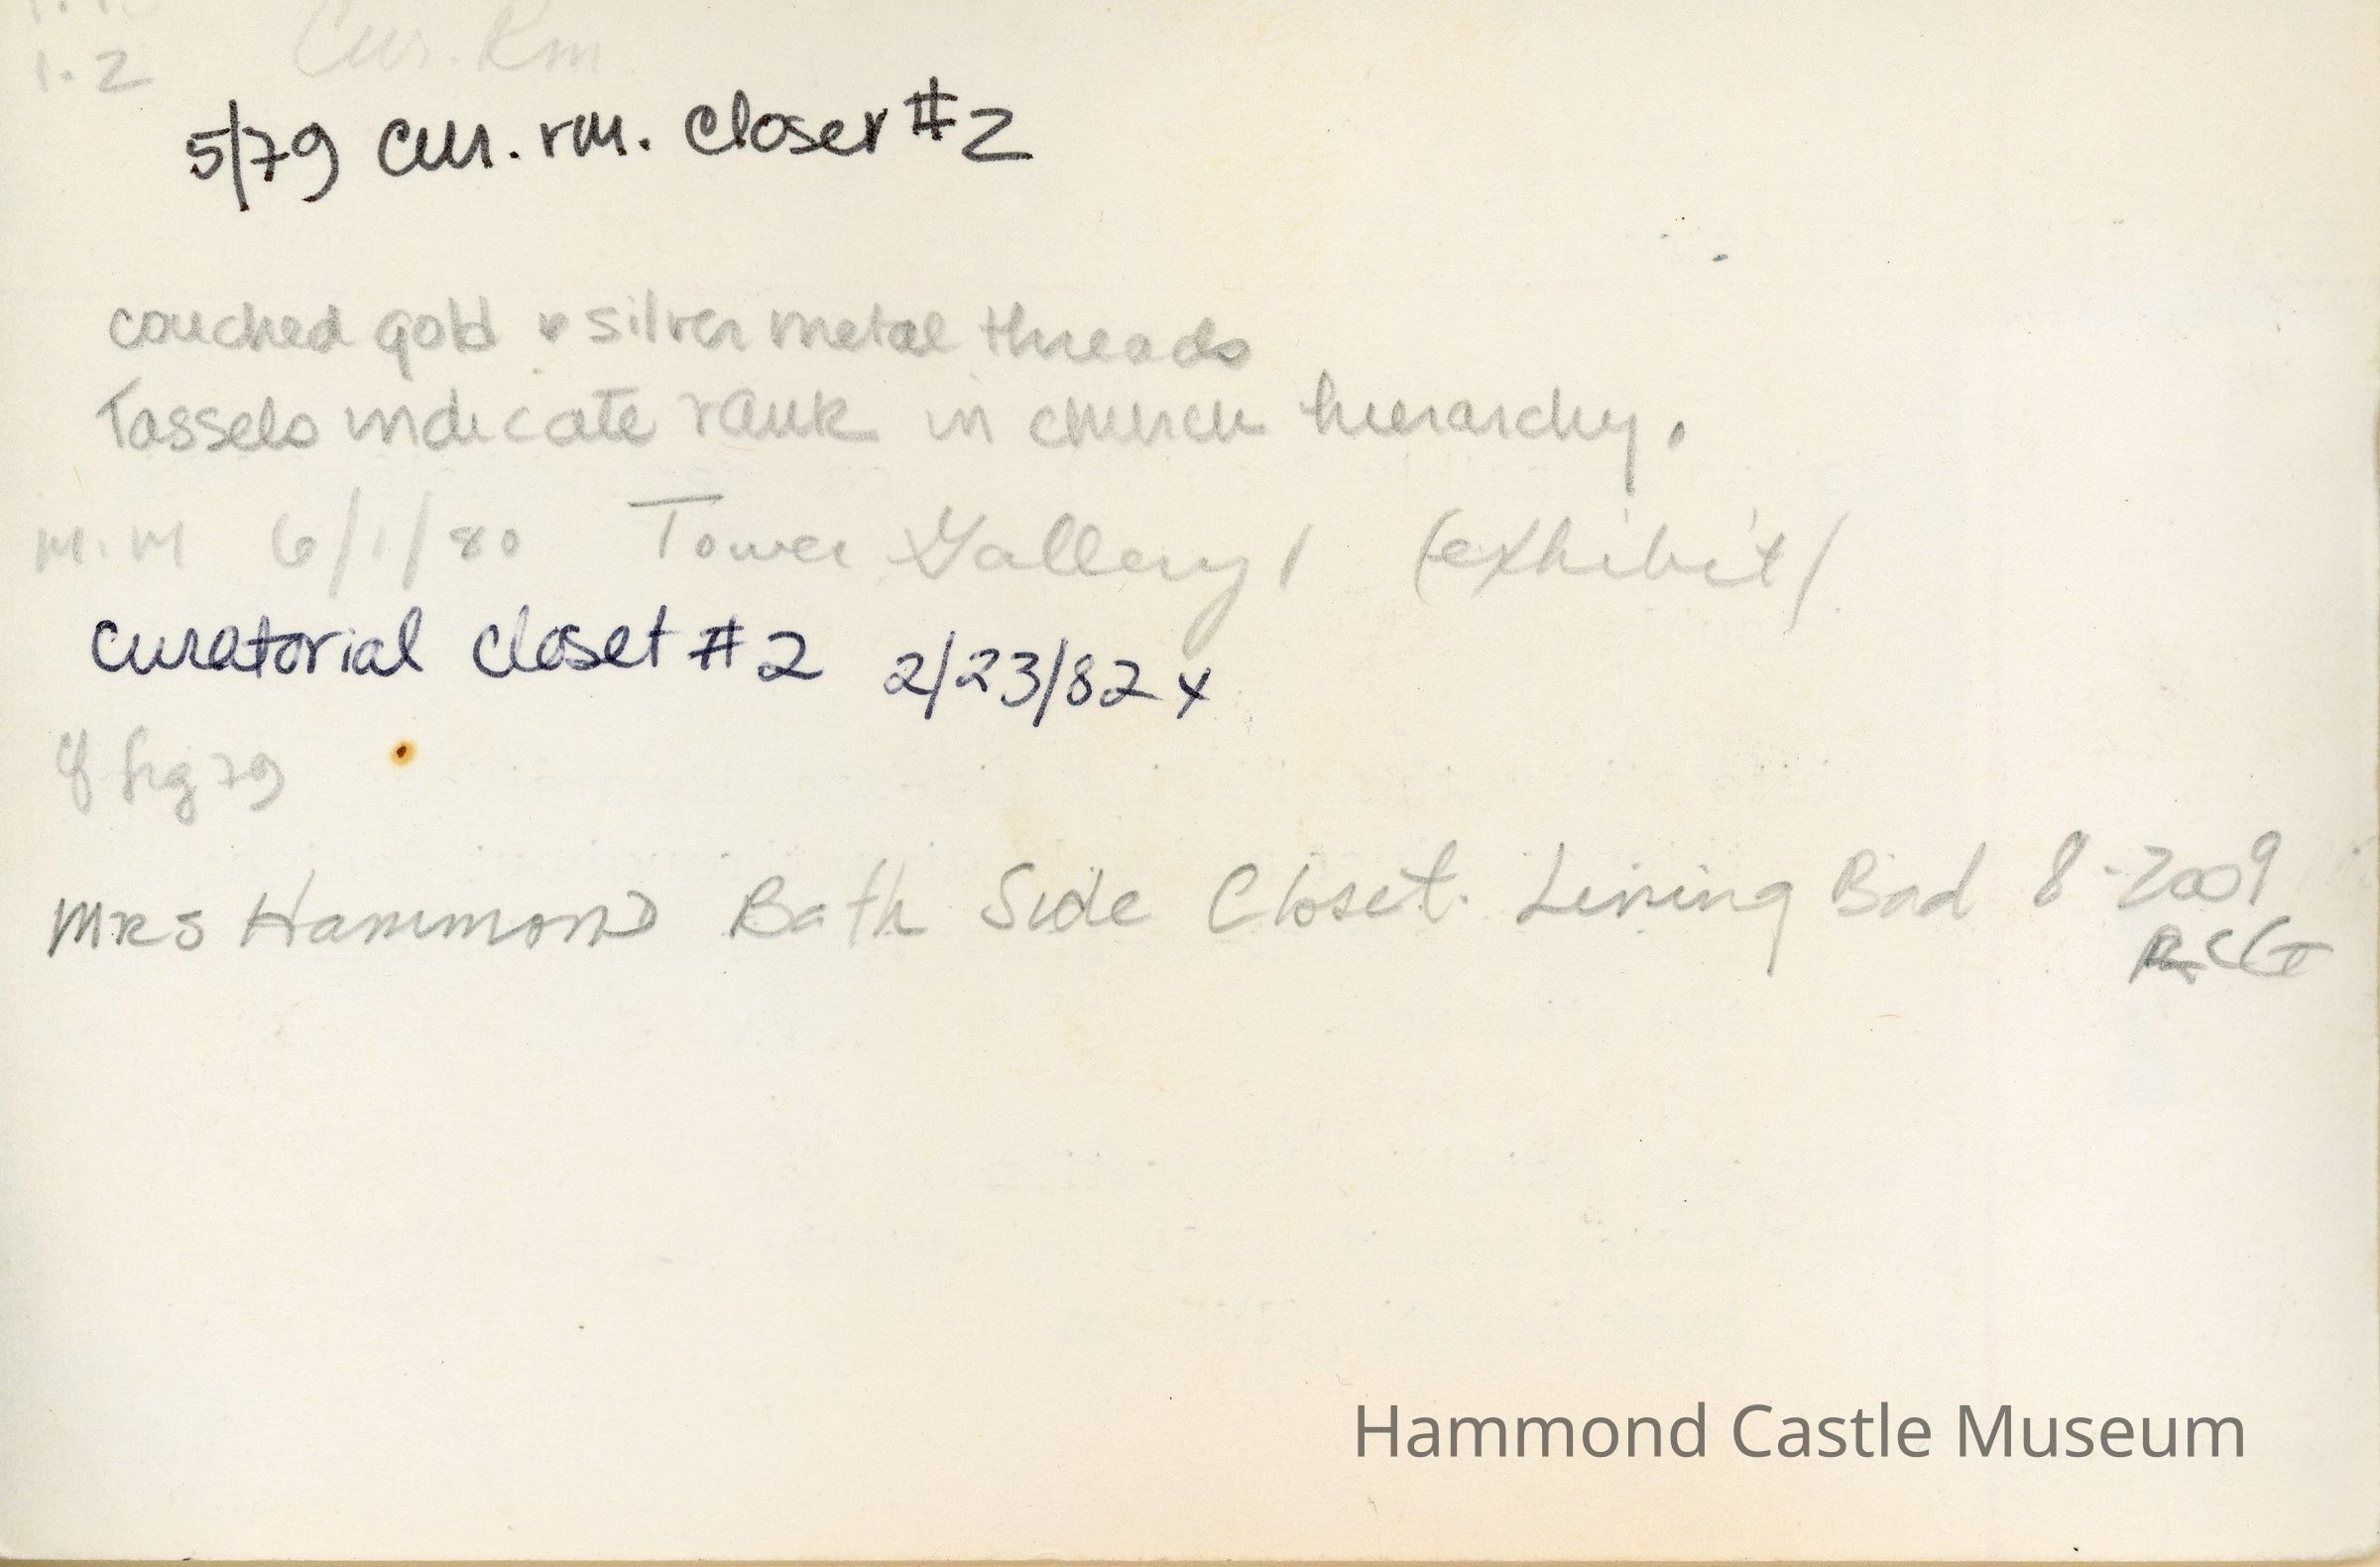 1.2 Cur. Rm.
5/79 cur. rm. closet #2
couched gold & silver metal threads
Tassels indicate rank in church hierarchy.
M.M 6/1/80 Tower Gallery 1 (exhibit)
Curatorial closet #2 2/23/82 x
fig 79
Mrs Hammond Bath Side Closet. Lining Bad 8-2009
RCG
Hammond Castle Museum